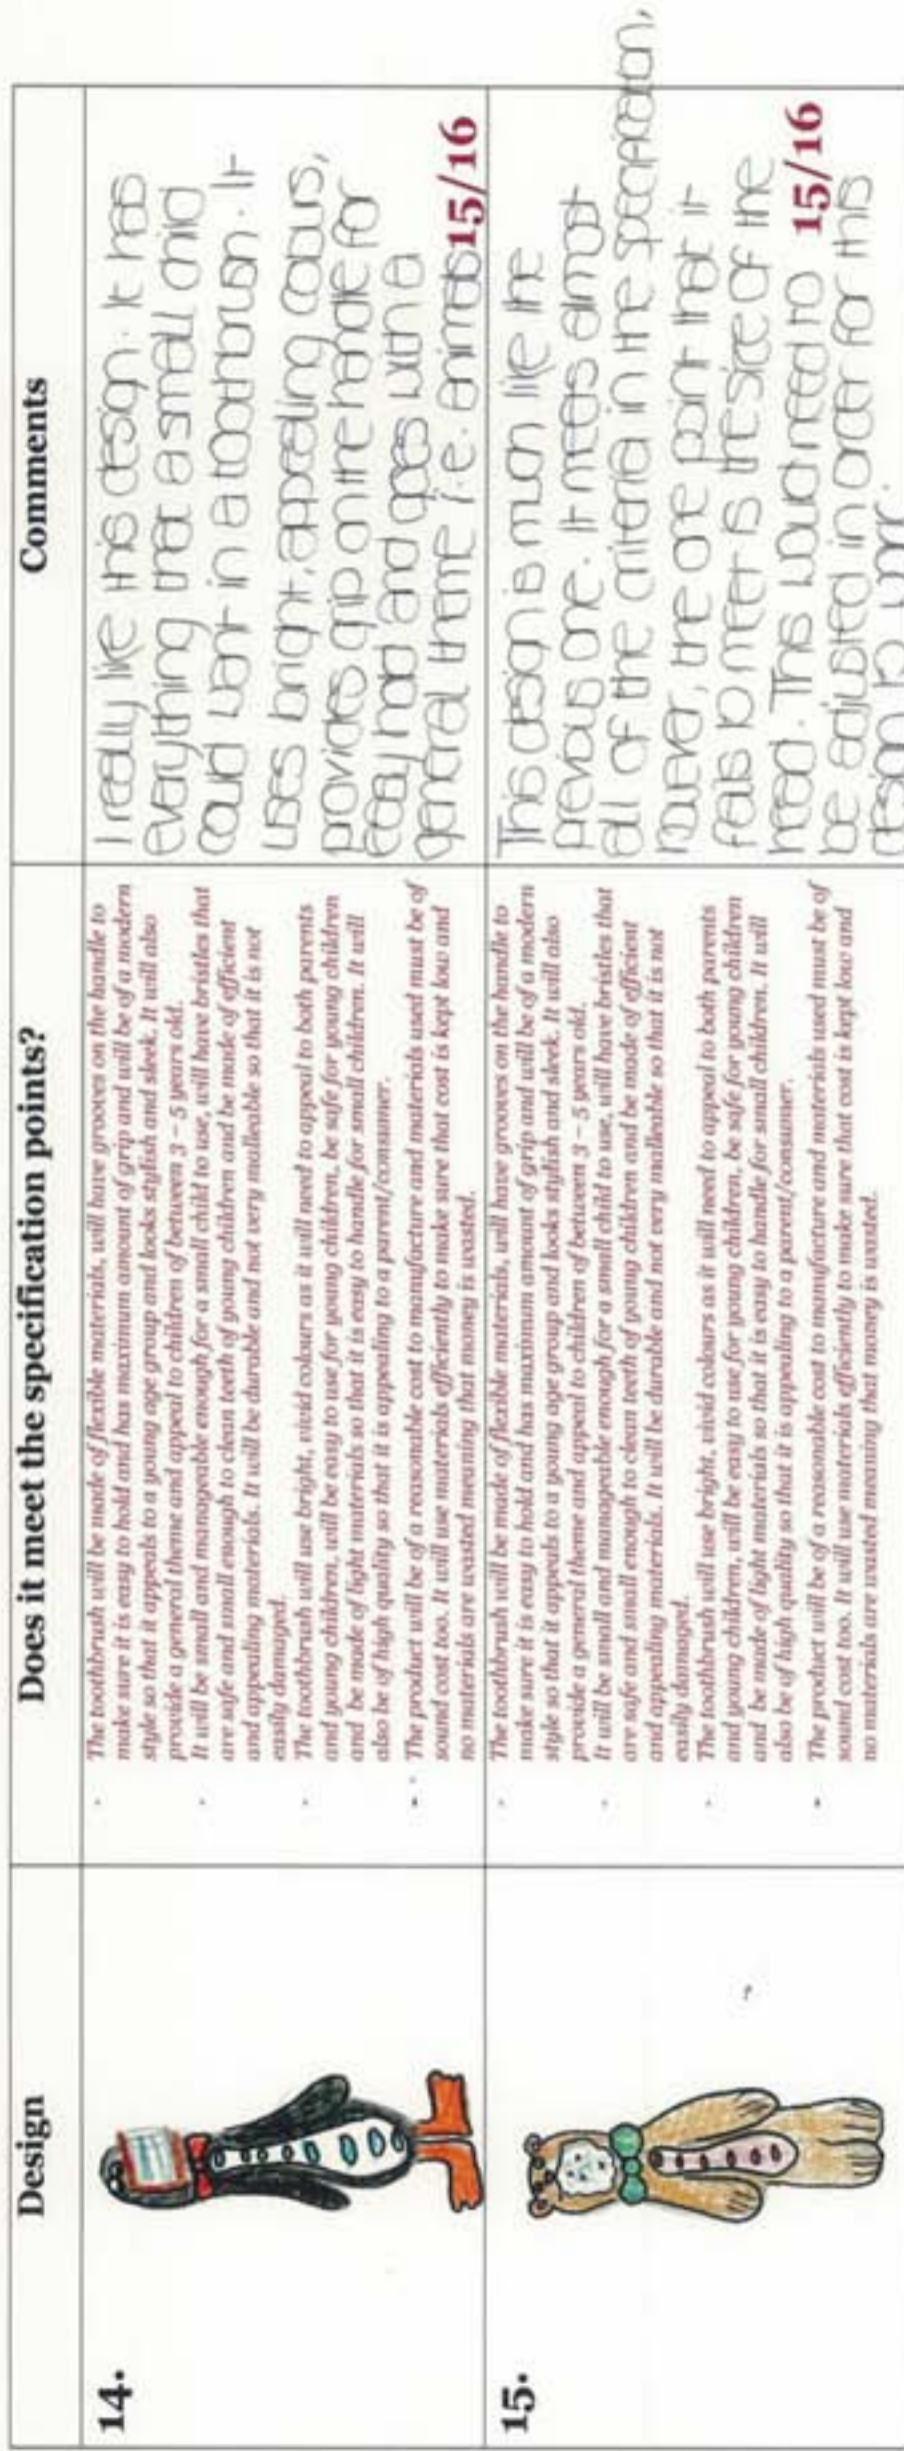 Design
Does it meet the specification points?
Comments
14.
The toothbrush will be made of flexible materials, will have grooves on the handle to
make sure it is easy to hold and has maximum amount of grip and will be of a modern
style so that it appeals to a young age group and looks stylish and sleek. It will also
provide a general theme and appeal to children of between 3 – 5 years old.
It will be small and manageable enough for a small child to use, will have bristles that
are safe and small enough to clean teeth of young children and be made of efficient
and appealing materials. It will be durable and not very malleable so that it is not
easily damaged.
The toothbrush will use bright, vivid colours as it will need to appeal to both parents
and young children, will be easy to use for young children, be safe for young children
and be made of light materials so that it is easy to handle for small children. It will
also be of high quality so that it is appealing to a parent/consumer.
The product will be of a reasonable cost to manufacture and materials used must be of
sound cost too. It will use materials efficiently to make sure that cost is kept low and
no materials are wasted meaning that money is wasted.
I really like this design. It has
everything that a small child
could want in a toothbrush. It
uses bright, appealing colours,
provides grip on the handle for
easy hold and goes with a
general theme i.e. animals
15/16
15.
The toothbrush will be made of flexible materials, will have grooves on the handle to
make sure it is easy to hold and has maximum amount of grip and will be of a modern
style so that it appeals to a young age group and looks stylish and sleek. It will also
provide a general theme and appeal to children of between 3 – 5 years old.
It will be small and manageable enough for a small child to use, will have bristles that
are safe and small enough to clean teeth of young children and be made of efficient
and appealing materials. It will be durable and not very malleable so that it is not
easily damaged.
The toothbrush will use bright, vivid colours as it will need to appeal to both parents
and young children, will be easy to use for young children, be safe for young children
and be made of light materials so that it is easy to handle for small children. It will
also be of high quality so that it is appealing to a parent/consumer.
The product will be of a reasonable cost to manufacture and materials used must be of
sound cost too. It will use materials efficiently to make sure that cost is kept low and
no materials are wasted meaning that money is wasted.
This design is much like the
previous one. It meets almost
all of the criteria in the specification,
however, the one point that it
fails to meet is the size of the
head. This would need to
15/16
be adjusted in order for this
design to work.